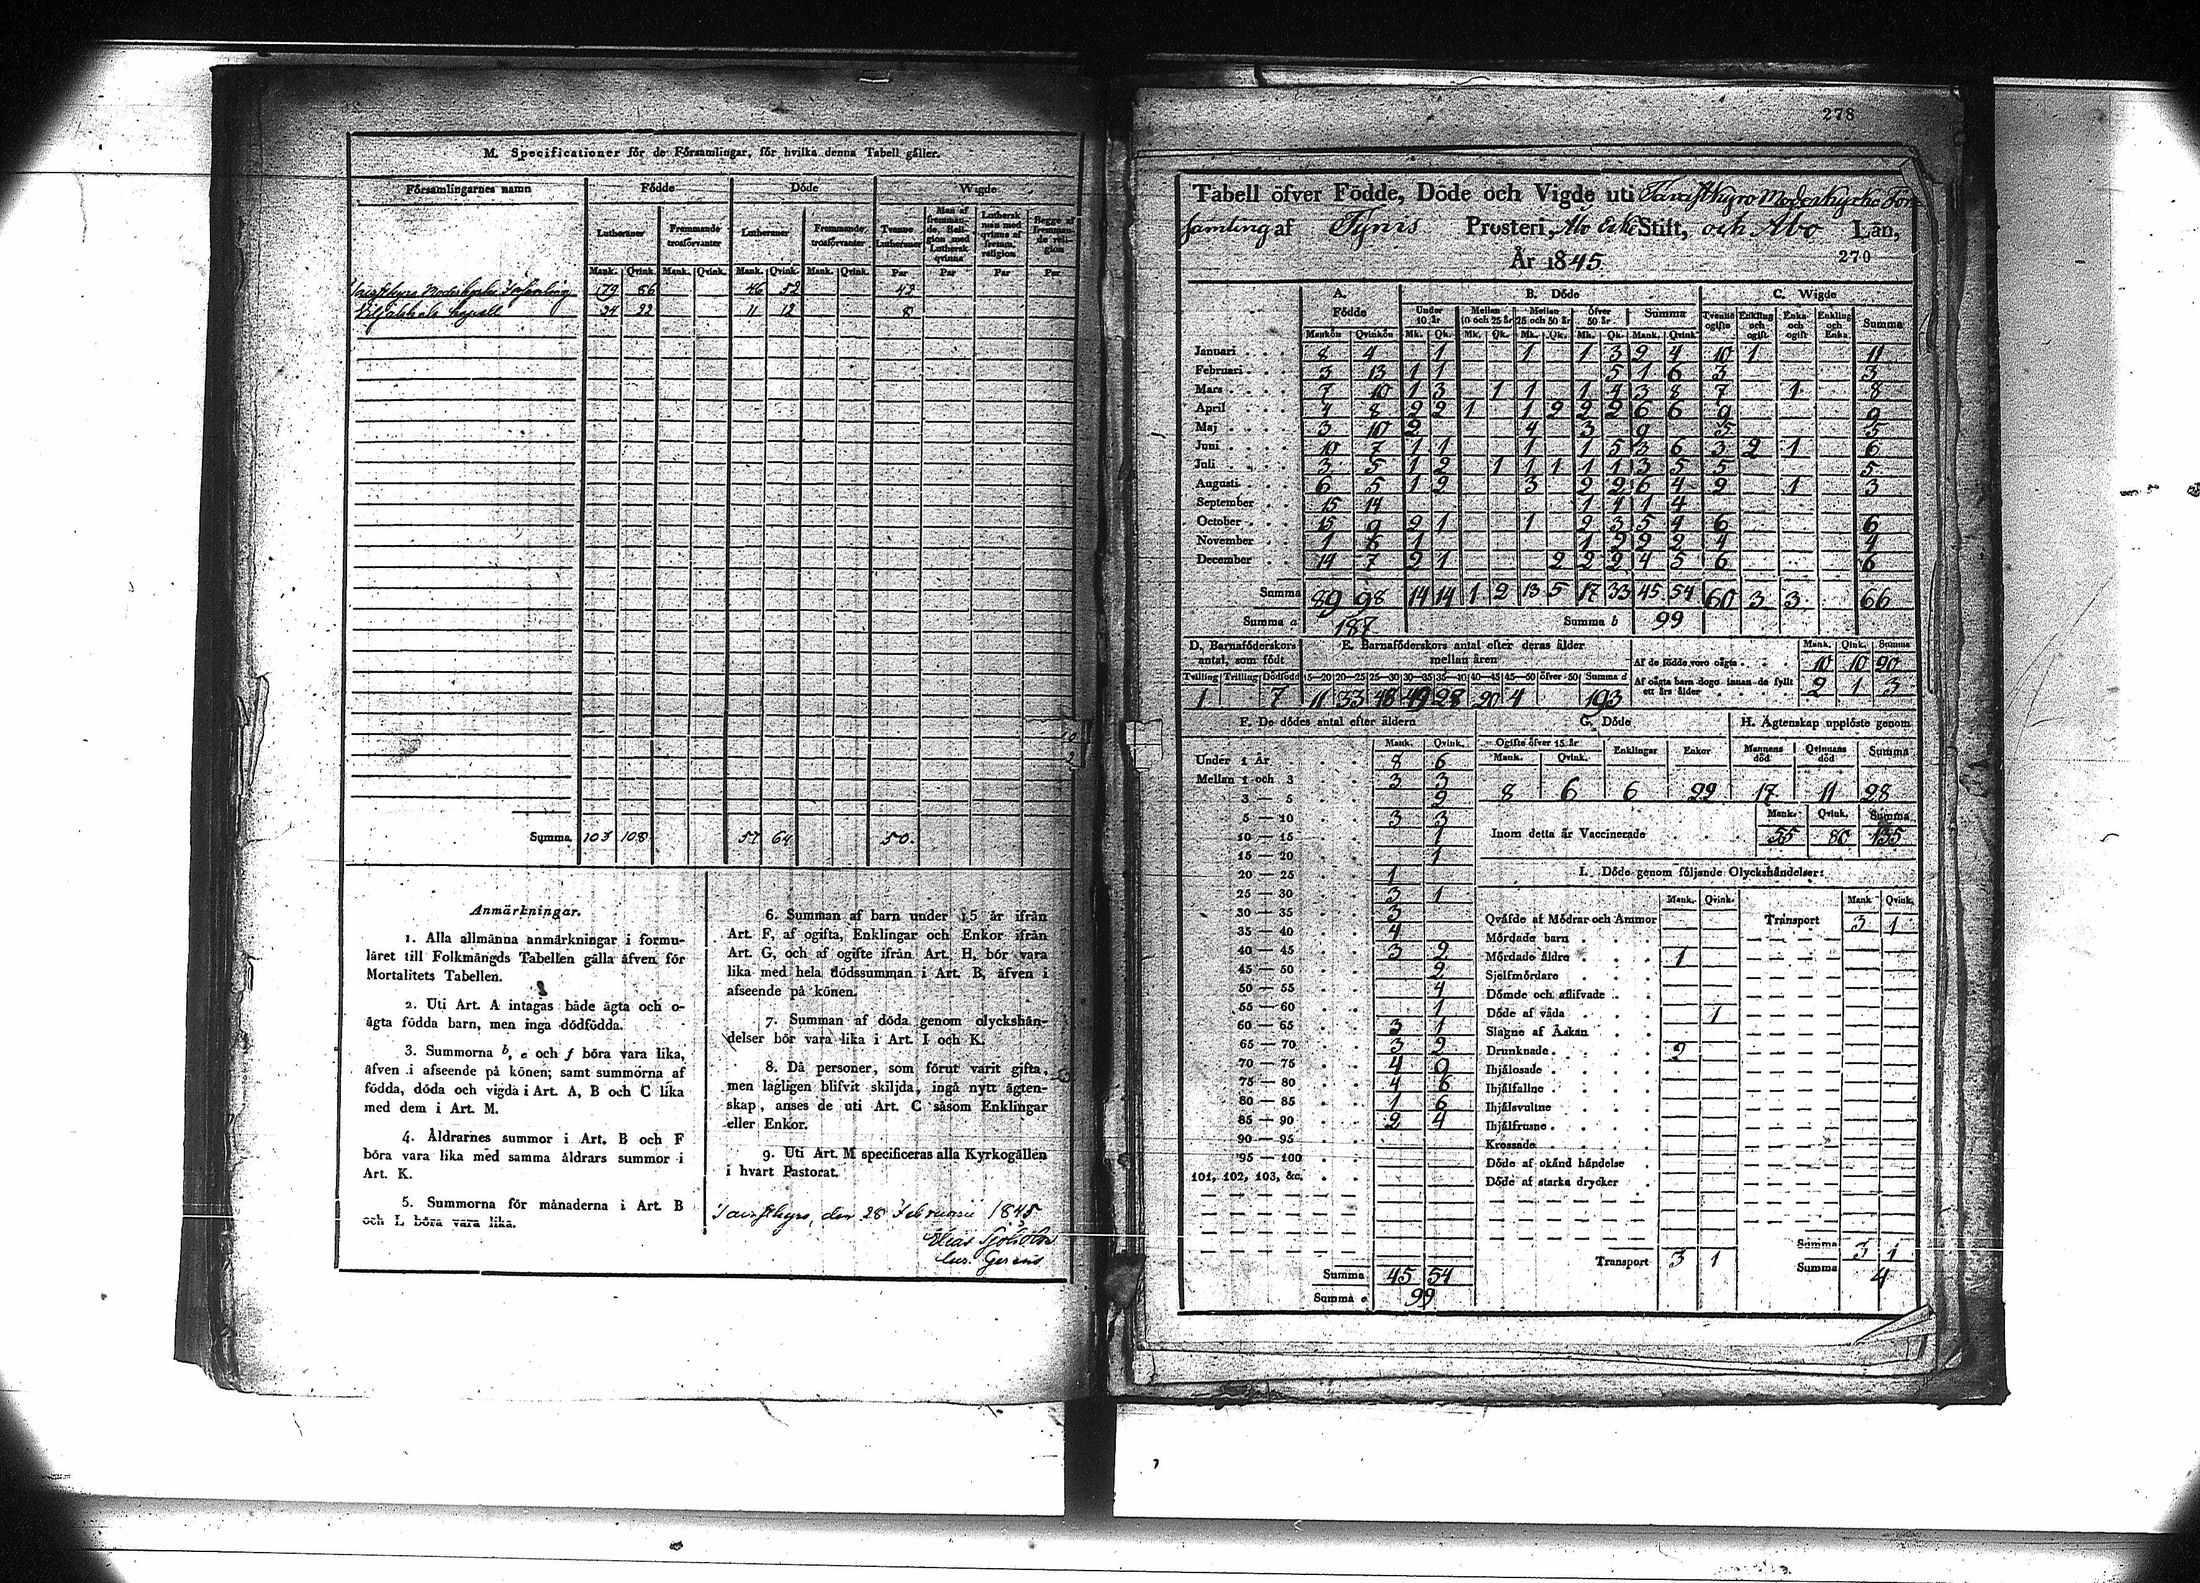 M. Specificationer för de Församlingar, för hvilka denna Tabell gäller.
Församlingarnes namn Födde Döde Wigde
Lutheraner Fremmande trosförvanter Lutheraner Fremmande trosförvanter Tvenne Lutheraner Man af fremmande Religion med Luthersk qvinna Luthersk man med qvinna af fremm. religion Begge af fremmande religion
Mank. Qvink. Mank. Qvink. Mank. Qvink. Mank. Qvink. Par Par Par Par
Moderkyrko Församling 79 86 46 52 42
kapell 24 22 11 12 8
Summa 103 108 57 64 50.
Anmärkningar.
1. Alla allmänna anmärkningar i formu-
läret till Folkmängds Tabellen gälla äfven för
Mortalitets Tabellen.
2. Uti Art. A intagas både ägta och o-
ägta födda barn, men inga dödfödda.
3. Summorna b, e och f böra vara lika,
äfven i afseende på könen; samt summorna af
födda, döda och vigda i Art. A, B och C lika
med dem i Art. M.
4. Åldrarnes summor i Art. B och F
böra vara lika med samma åldrars summor i
Art. K.
5. Summorna för månaderna i Art. B
och L böra vara lika.
6. Summan af barn under 15 år ifrån
Art. F, af ogifta, Enklingar och Enkor ifrån
Art. G, och af ogifte ifrån Art. H, bör vara
lika med hela dödssumman i Art. B, äfven i
afseende på könen.
7. Summan af döda genom olyckshän-
delser bör vara lika i Art. I och K.
8. Då personer, som förut varit gifta,
men lagligen blifvit skiljda, ingå nytt ägten-
skap, anses de uti Art. C såsom Enklingar
eller Enkor.
9. Uti Art. M specificeras alla Kyrkogällen
i hvart Pastorat.
den 28 Februarii 1845
Elias
278
Tabell öfver Födde, Döde och Vigde uti Tavastkyro Moderkyrko För-
samling af Tyrvis Prosteri, Åbo Erke Stift, och Åbo Län,
År 1845.
270
A. Födde B. Döde C. Wigde
Under 10 år Mellan 10 och 25 år Mellan 25 och 50 år Öfver 50 år Summa Tvenne ogifte Enkling och ogift Enka och ogift Enkling och Enka Summa
Mankön Qvinkön Mk. Qk. Mk. Qk. Mk. Qk. Mk. Qk. Mank. Qvink
Januari 8 4 1 1 1 3 2 4 10 1 11
Februari 3 13 1 1 5 1 6 3 3
Mars 7 10 1 3 1 1 1 4 3 8 7 1 8
April 4 8 2 2 1 1 2 2 2 6 6 9 9
Maj 3 10 2 4 3 9 5 5
Juni 10 7 1 1 1 1 5 3 6 3 2 1 6
Juli 3 5 1 2 1 1 1 1 1 3 5 5 5
Augusti 6 5 1 2 3 2 2 6 4 2 1 3
September 15 14 1 4 1 4
October 15 9 2 1 1 2 3 5 4 6 6
November 1 6 1 1 2 2 2 4 4
December 14 7 2 1 2 2 2 4 5 6 6
Summa 89 98 14 14 1 2 13 5 17 33 45 54 60 3 3 66
Summa a 187 Summa b 99
D. Barnaföderskors antal, som födt
Tvilling Trilling Dödfödd
1 7
E. Barnaföderskors antal efter deras ålder mellan åren
15—20 20—25 25—30 30—35 35—40 40—45 45—50 öfver 50 Summa d
11 33 48 49 28 20 4 193
Mank. Qink. Summa
Af de födde voro oägta 10 10 20
Af oägta barn dogo innan de fyllt ett års ålder 2 1 3
F. De dödes antal efter åldern
Mank. Qvink.
Under 1 År 8 6
Mellan 1 och 3 3 3
3 — 5 2
5 — 10 3 3
10 — 15 1
15 — 20 1
20 — 25 1
25 — 30 3 1
30 — 35 3
35 — 40 4
40 — 45 3 2
45 — 50 2
50 — 55 4
55 — 60 1
60 — 65 3 1
65 — 70 3 2
70 — 75 4 9
75 — 80 4 6
80 — 85 1 6
85 — 90 2 4
90 — 95
95 — 100
101, 102, 103, &c.
Summa 45 54
Summa e 99
G. Döde
Ogifte öfver 15 år Enklingar Enkor
Mank. Qvink.
8 6 6 22
H. Ägtenskap upplöste genom
Mannens död Qvinnans död Summa
17 11 28
Mank. Qvink. Summa
Inom detta år Vaccinerade 55 80 135
I. Döde genom följande Olyckshändelser:
Mank. Qvink. Mank Qvink.
Qväfde af Mödrar och Ammor Transport 3 1
Mördade barn
Mördade äldre 1
Sjelfmördare
Dömde och aflifvade
Döde af våda 1
Slagne af Åskan
Drunknade 2
Ihjälosade
Ihjälfallne
Ihjälsvultne
Ihjälfrusne
Krossade
Döde af okänd händelse
Döde af starka drycker
Transport 3 1
Summa 3 1
Summa 4